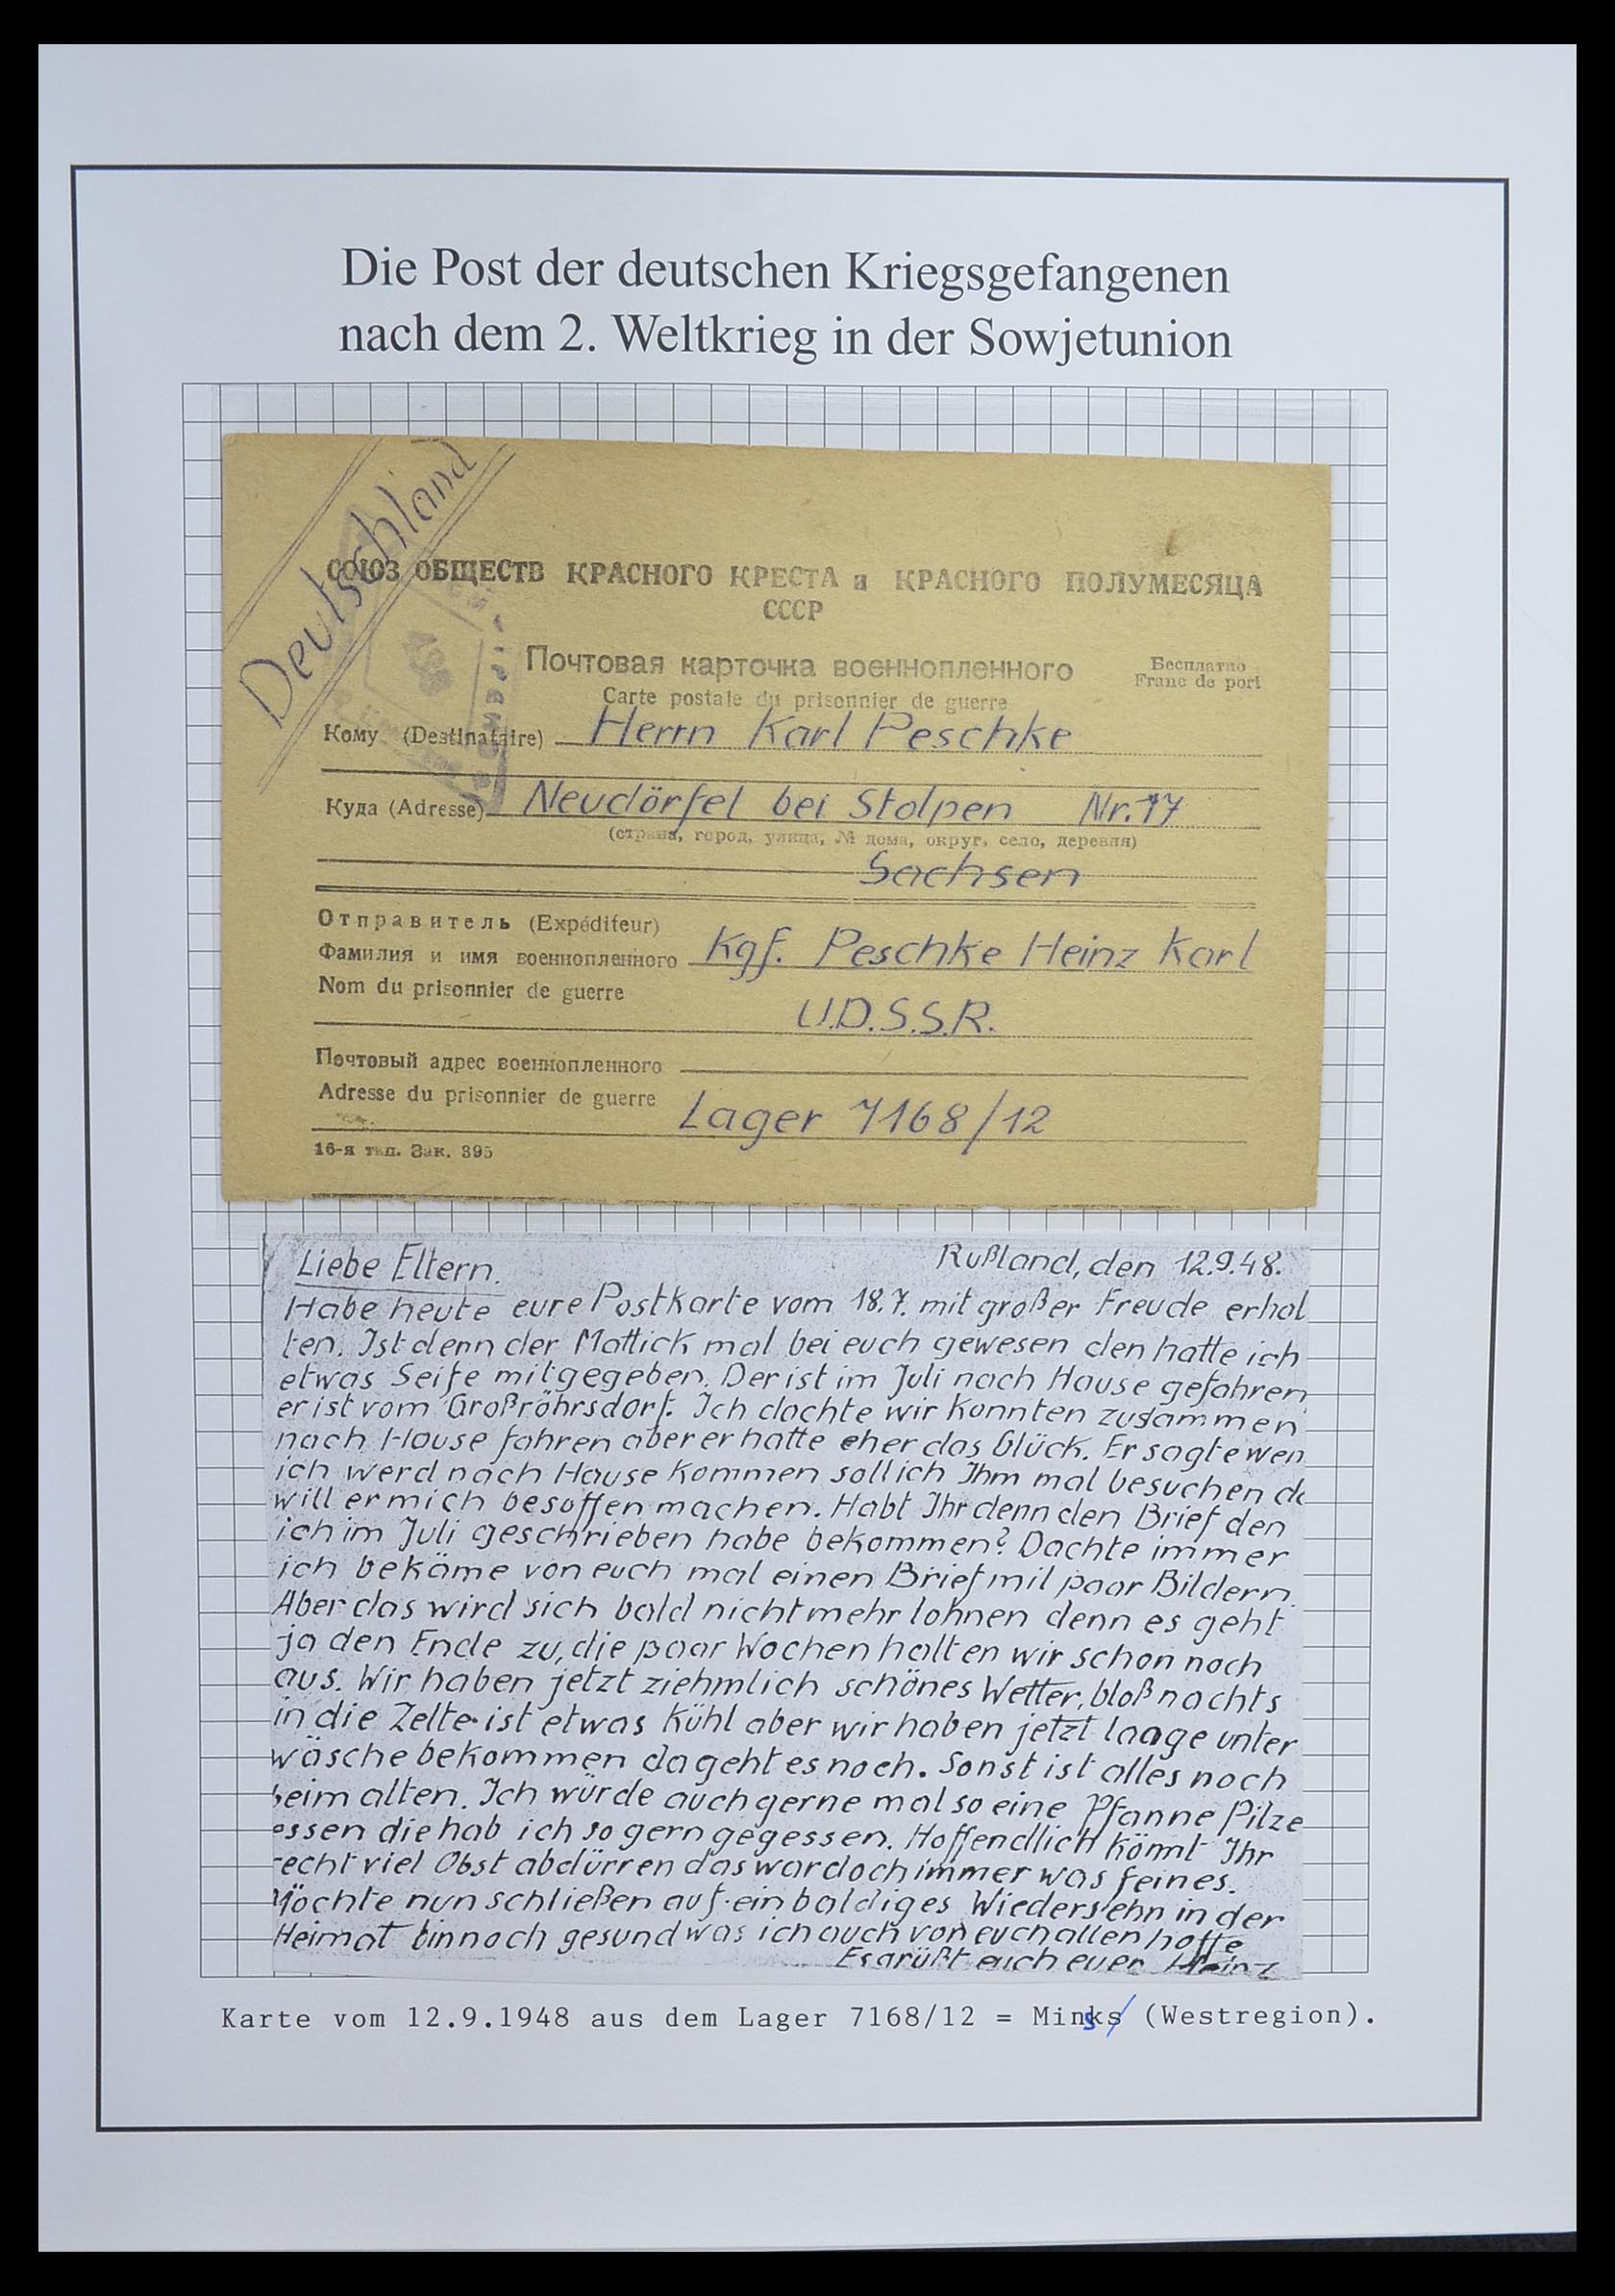 Die Post der deutschen Kriegsgefangenen
nach dem 2. Weltkrieg in der Sowjetunion
Deutschland
СОЮЗ ОБЩЕСТВ КРАСНОГО КРЕСТА и КРАСНОГО ПОЛУМЕСЯЦА
СССР
Почтовая карточка военнопленного
Бесплатно
Carte postale du prisonnier de guerre
Franc de port
Кому (Destinataire) Herrn Karl Peschke
Куда (Adresse) Neudörfel bei Stolpen Nr. 17
(страна, город, улица, № дома, округ, село, деревня)
Sachsen
Отправитель (Expéditeur)
Фамилия и имя военнопленного Kgf. Peschke Heinz Karl
Nom du prisonnier de guerre
U.D.S.S.R.
Почтовый адрес военнопленного
Adresse du prisonnier de guerre Lager 7168/12
16-я тип. Зак. 395
Liebe Eltern. Rußland, den 12.9.48.
Habe heute eure Postkarte vom 18.7. mit großer Freude erhal
ten. Ist denn der Mattick mal bei euch gewesen den hatte ich
etwas Seife mitgegeben. Der ist im Juli nach Hause gefahren
er ist vom Großröhrsdorf. Ich dachte wir konnten zusammen
nach Hause fahren aber er hatte eher das Glück. Er sagte wen
ich werd nach Hause kommen soll ich Ihm mal besuchen da
will er mich besoffen machen. Habt Ihr denn den Brief den
ich im Juli geschrieben habe bekommen? Dachte immer
ich bekäme von euch mal einen Brief mit paar Bildern.
Aber das wird sich bald nicht mehr lohnen denn es geht
ja den Ende zu, die paar Wochen halten wir schon noch
aus. Wir haben jetzt ziehmlich schönes Wetter, bloß nachts
in die Zelte ist etwas kühl aber wir haben jetzt laage unter
wäsche bekommen da geht es noch. Sonst ist alles noch
beim alten. Ich würde auch gerne mal so eine Pfanne Pilze
essen die hab ich so gern gegessen. Hoffendlich könnt Ihr
recht viel Obst abdürren das war doch immer was feines.
Möchte nun schließen auf ein baldiges Wiedersehn in der
Heimat bin noch gesund was ich auch von euch allen hoffe
Es grüßt euch euer Heinz
Karte vom 12.9.1948 aus dem Lager 7168/12 = Minsk (Westregion).